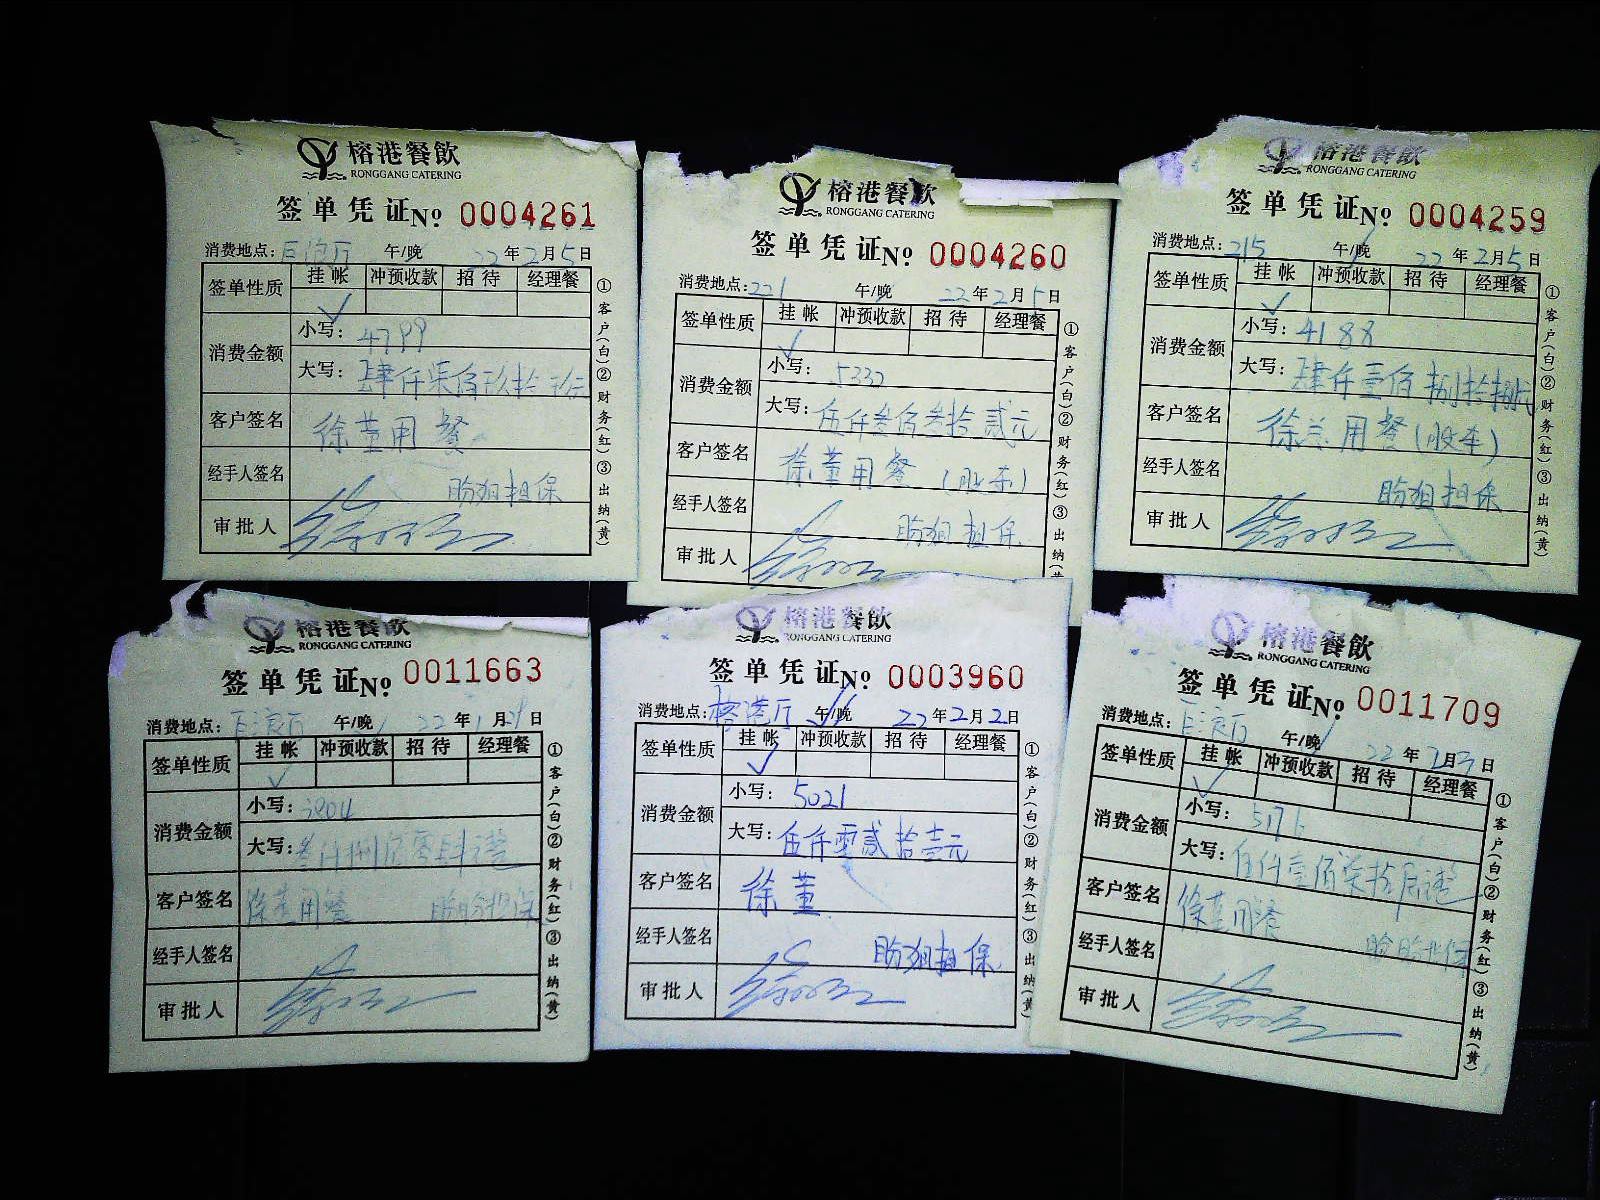 榕港餐飲
RONGGANG CATERING
签单凭证№ 0004261
消费地点: 午/晚 22年2月5日
签单性质 挂帐 冲预收款 招待 经理餐
✓
消费金额 小写: 4799
大写: 肆仟柒佰玖拾玖元
客户签名 徐董用餐
经手人签名 盼姐担保
审批人
①客户(白)②财务(红)③出纳(黄)
榕港餐飲
RONGGANG CATERING
签单凭证№ 0004260
消费地点: 221 午/晚 22年2月5日
签单性质 挂帐 冲预收款 招待 经理餐
✓
消费金额 小写: 5332
大写: 伍仟叁佰叁拾贰元
客户签名 徐董用餐(股东)
经手人签名 盼姐担保
审批人
①客户(白)②财务(红)③出纳
榕港餐飲
RONGGANG CATERING
签单凭证№ 0004259
消费地点: 215 午/晚 22年2月5日
签单性质 挂帐 冲预收款 招待 经理餐
✓
消费金额 小写: 4188
大写: 肆仟壹佰捌拾捌元
客户签名 徐总用餐(股东)
经手人签名 盼姐担保
审批人
①客户(白)②财务(红)③出纳(黄)
榕港餐飲
RONGGANG CATERING
签单凭证№ 0011663
消费地点: 午/晚 22年1月29日
签单性质 挂帐 冲预收款 招待 经理餐
✓
消费金额 小写: 3804
大写: 叁仟捌佰零肆元整
客户签名 徐董用餐 盼盼担保
经手人签名
审批人
①客户(白)②财务(红)③出纳(黄)
榕港餐飲
RONGGANG CATERING
签单凭证№ 0003960
消费地点: 榕港厅 午/晚 22年2月2日
签单性质 挂帐 冲预收款 招待 经理餐
✓
消费金额 小写: 5021
大写: 伍仟零贰拾壹元
客户签名 徐董
经手人签名 盼姐担保
审批人
①客户(白)②财务(红)③出纳(黄)
榕港餐飲
RONGGANG CATERING
签单凭证№ 0011709
消费地点: 午/晚 22年2月3日
签单性质 挂帐 冲预收款 招待 经理餐
✓
消费金额 小写:
大写: 伍仟壹佰柒拾
客户签名 徐董用餐
经手人签名 盼盼担保
审批人
①客户(白)②财务(红)③出纳(黄)